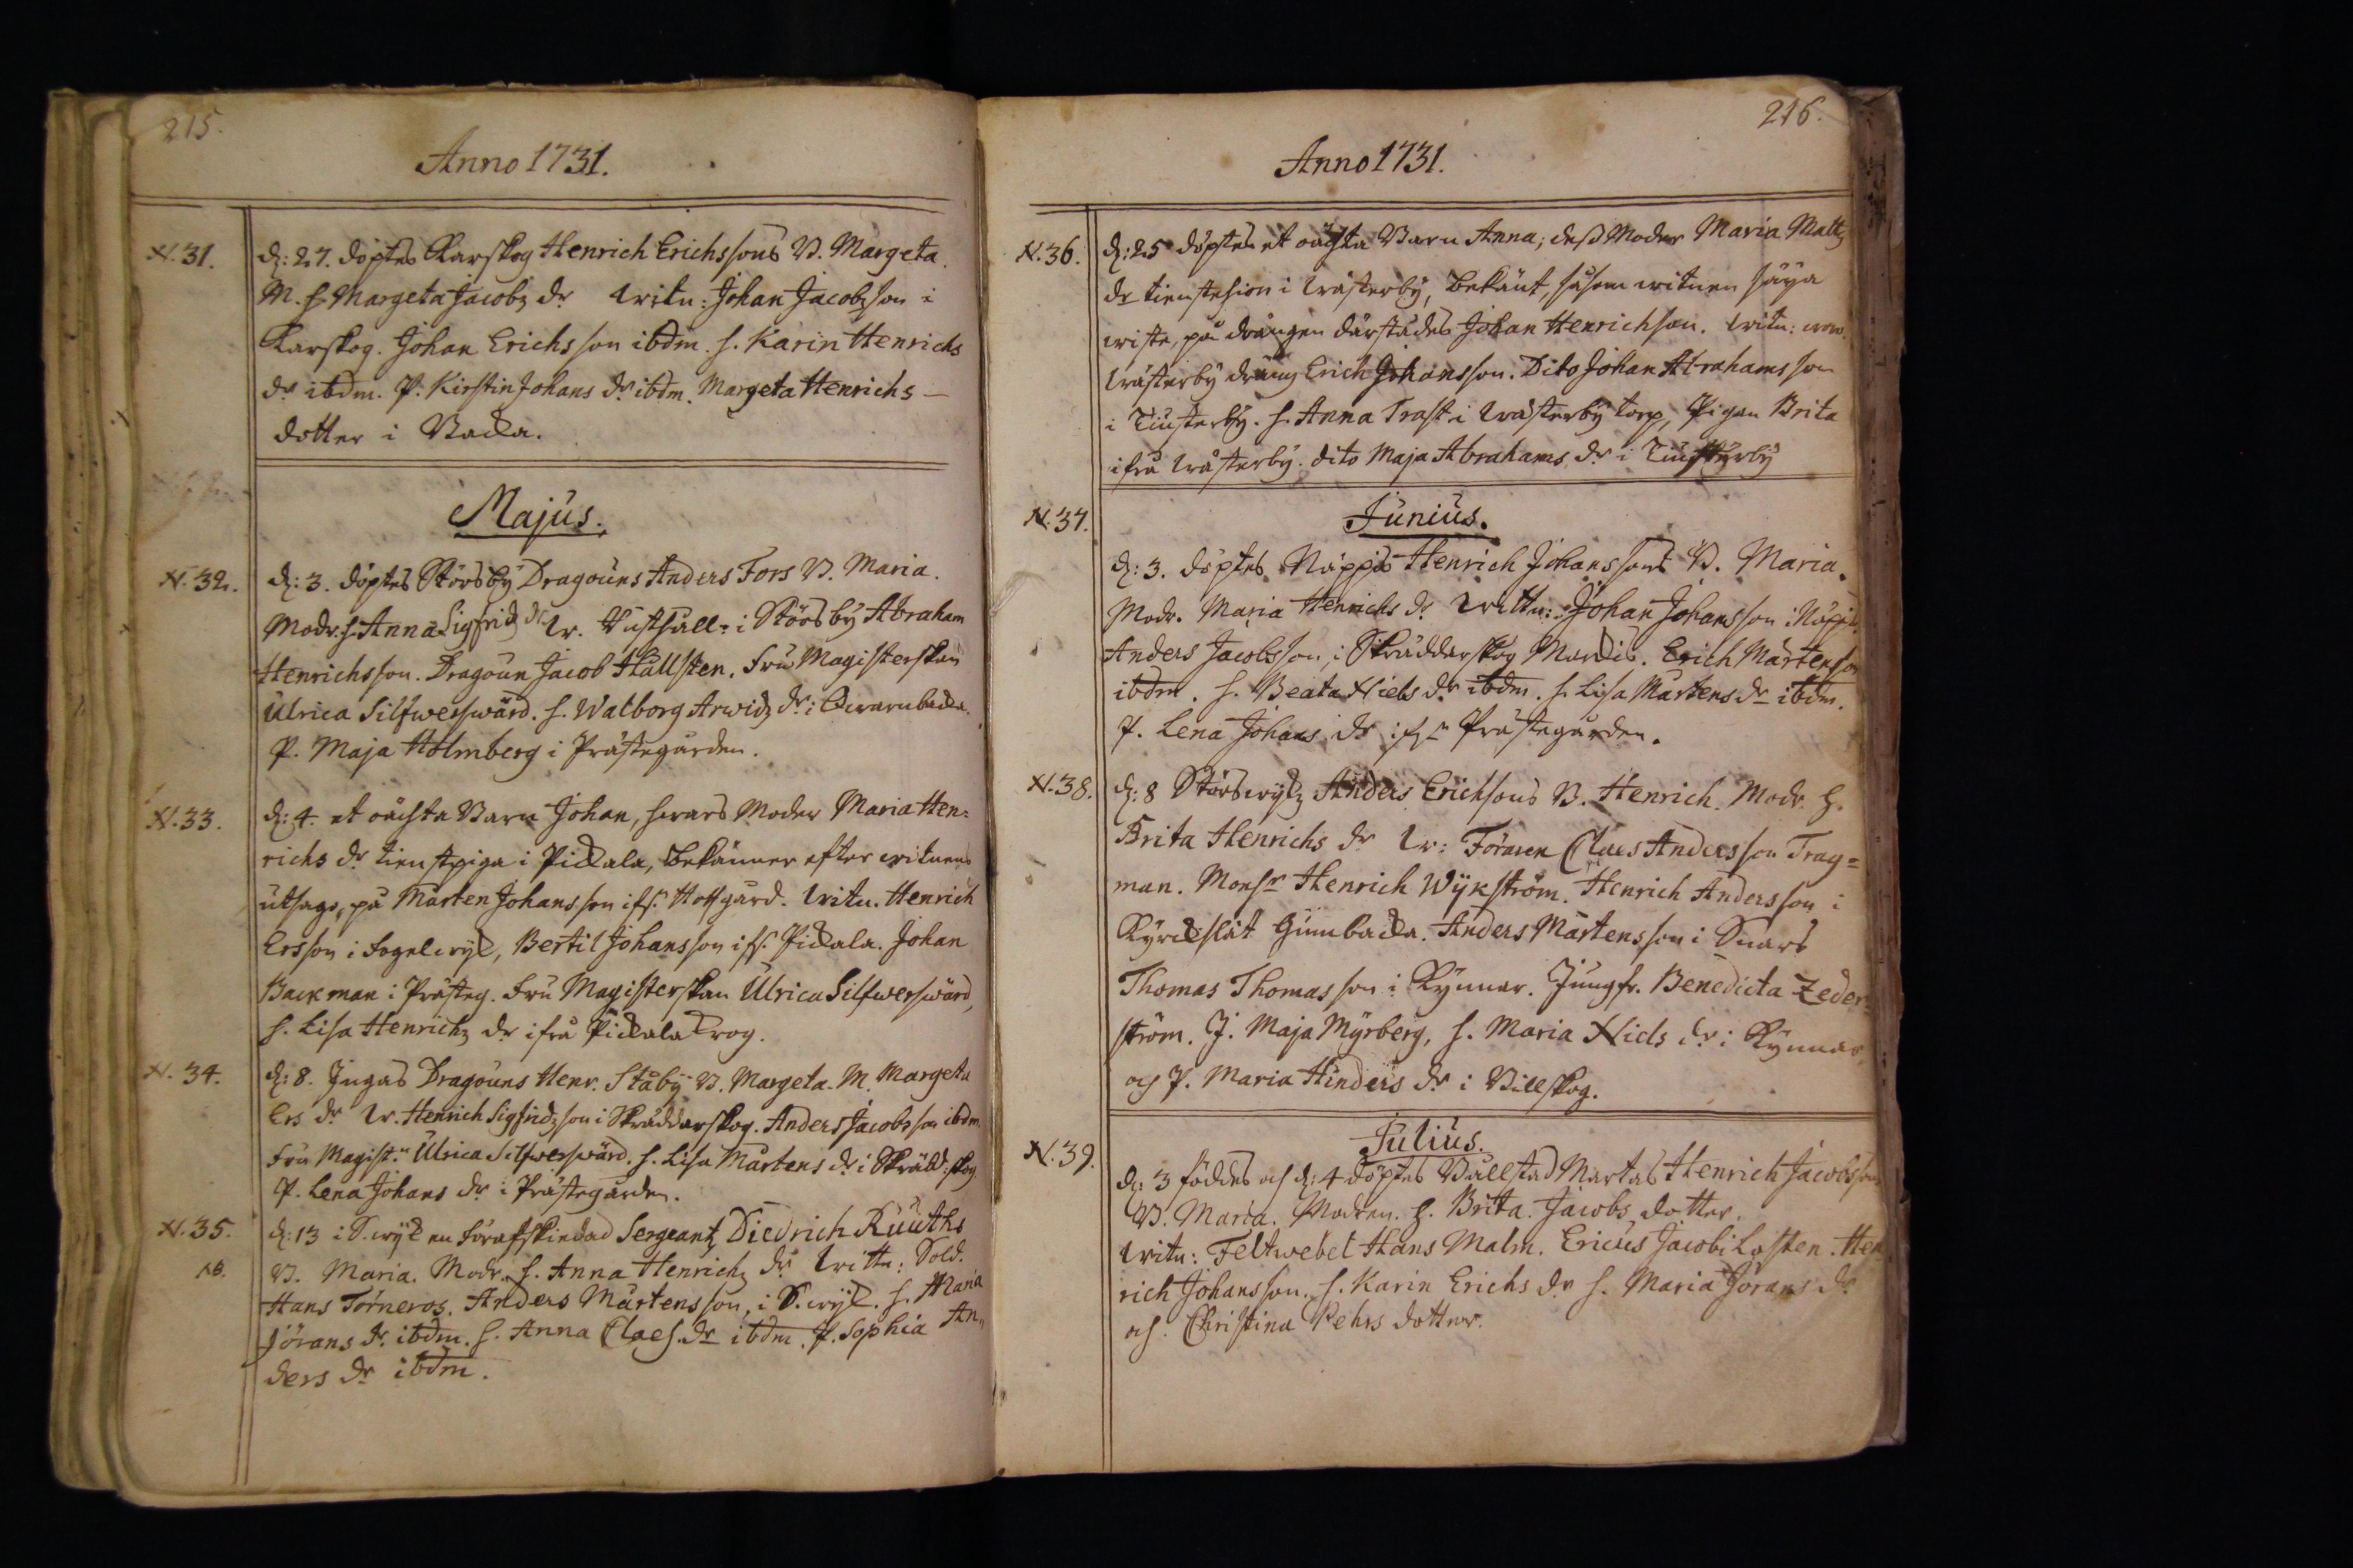 215.
Anno 1731.
N. 31. d: 27. döptes Karskog Henrich Erichssons B. Margeta.
M. H. Margeta Jacobz dr Witn: Johan Jacobzson i
Karskog. Johan Erichsson ibdm. H. Karin Henrichs
dr ibdm. P. Kirstin Johans dr ibdm. Margeta Henrichs
dotter i Backa.
Majus.
N. 32. d: 3. döptes Störsby Dragouns Anders Fors B. Maria.
Modr. H. Anna Sigfridz dr W. Hushåll: i Störsby Abraham
Henrichsson. Dragoun Jacob Hällsten. Fru Magisterskan
Ulrica Silfwerswärd. H. Walborg Arwidz dr i Qwarnbacka.
P. Maja Holmberg i Prästegården.
N. 33. d: 4. et oächta Barn Johan, hwars Moder Maria Hen=
richs dr tienstpiga i Pickala, bekänner efter witnens
utsago, på Mårten Johansson ifr. Hofgård. Witn. Henrich
Ersson i Fogelwyk, Bertil Johansson ifr. Pickala. Johan
Backman i Prästeg. Fru Magisterskan Ulrica Silfwerswärd,
H. Lisa Henrichz dr ifrå Pickala Krog.
N. 34. d: 8. Ingas Dragouns Henr. Ståby B. Margeta. M. Margeta
Ers dr W. Henrich Sigfridzson i Skräddarskog. Anders Jacobsson ibdm.
Fru Magist:n Ulrica Silfwerswärd. H. Lisa Mårtens dr i Skrädd:skog
P. Lena Johans dr i Prästegården.
N. 35. d: 13 i S.wyk en förafskiedad Sergeantz Diedrich Ruuths
NB. B. Maria. Modr. H. Anna Henrichz dr Wittn: Sold.
Hans Törneros. Anders Mårtensson, i S.wyk. H. Maria
Jörans dr. ibdm. H. Anna Claes. dr ibdm. P. Sophia An„
ders dr ibdm.
216.
Anno 1731.
N. 36. d: 25 döptes et oächta Barn Anna; dess Moder Maria Mattz
dr tiensthion i Wästerby, bekänt, såsom witnen säya
wiste, på drängen därstädes Johan Henrichson. Witn:
Wästerby dräng Erich Johansson. Dito Johan Abrahamsson
i Tiusterby. H. Anna Trast i Wästerby torp, Pigan Brita
ifrå Wästerby. dito Maja Abrahams dr i Tiusterby
Junius.
N. 37. d: 3. döptes Näppis Henrich Johanssons B. Maria.
Modr. Maria Henrichs dr Wittn: Johan Johansson i Näppis
Anders Jacobsson, i Skräddarskog Mardis. Erich Mårtensson
ibdm. H. Beata Niels dr ibdm. H. Lisa Mårtens dr ibdm.
P. Lena Johans dr ifrn Prästegården.
N. 38. d: 8 Störswykz Anders Erichsons B. Henrich. Modr. H.
Brita Henrichs dr W: Föraren Claes Andersson Trag=
man. Monsr Henrich Wykström. Henrich Andersson i
Kyrckslät Gunnbacka. Anders Mårtensson i Snars
Thomas Thomasson i Kynnar. Jungfr. Benedicta Zeder=
ström. J. Maja Myrberg, H. Maria Niels dr i Kynnar,
och P. Maria Hinders dr i Billskog.
Julius.
N. 39. d: 3 föddes och d: 4 döptes Bållstad Martas Henrich Jacobssons
B. Maria. Modren. H. Brita Jacobs dotter.
Witn: Feltwebel Hans Malm. Ericus Jacobi Losten. Hen
rich Johansson. H. Karin Erichs dr H. Maria Jörans dr
och Christina Pehrs dotter.